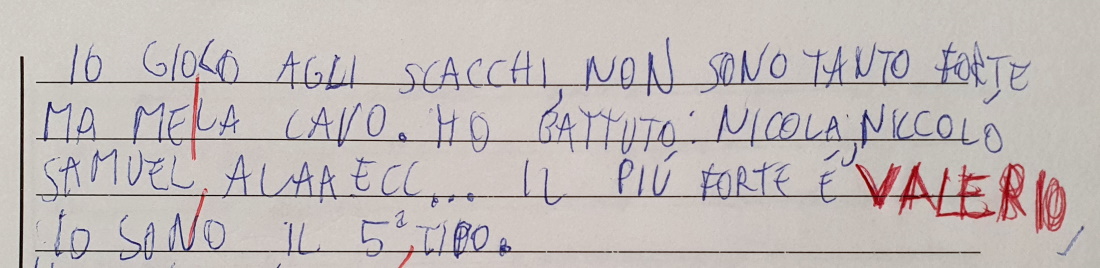 IO GIOCO AGLI SCACCHI, NON SONO TANTO FORTE,
MA ME LA CAVO. HO BATTUTO: NICOLA, NICCOLÒ
SAMUEL, ALAA ECC... IL PIÚ FORTE É VALERIO,
IO SONO IL 5° TIPO.